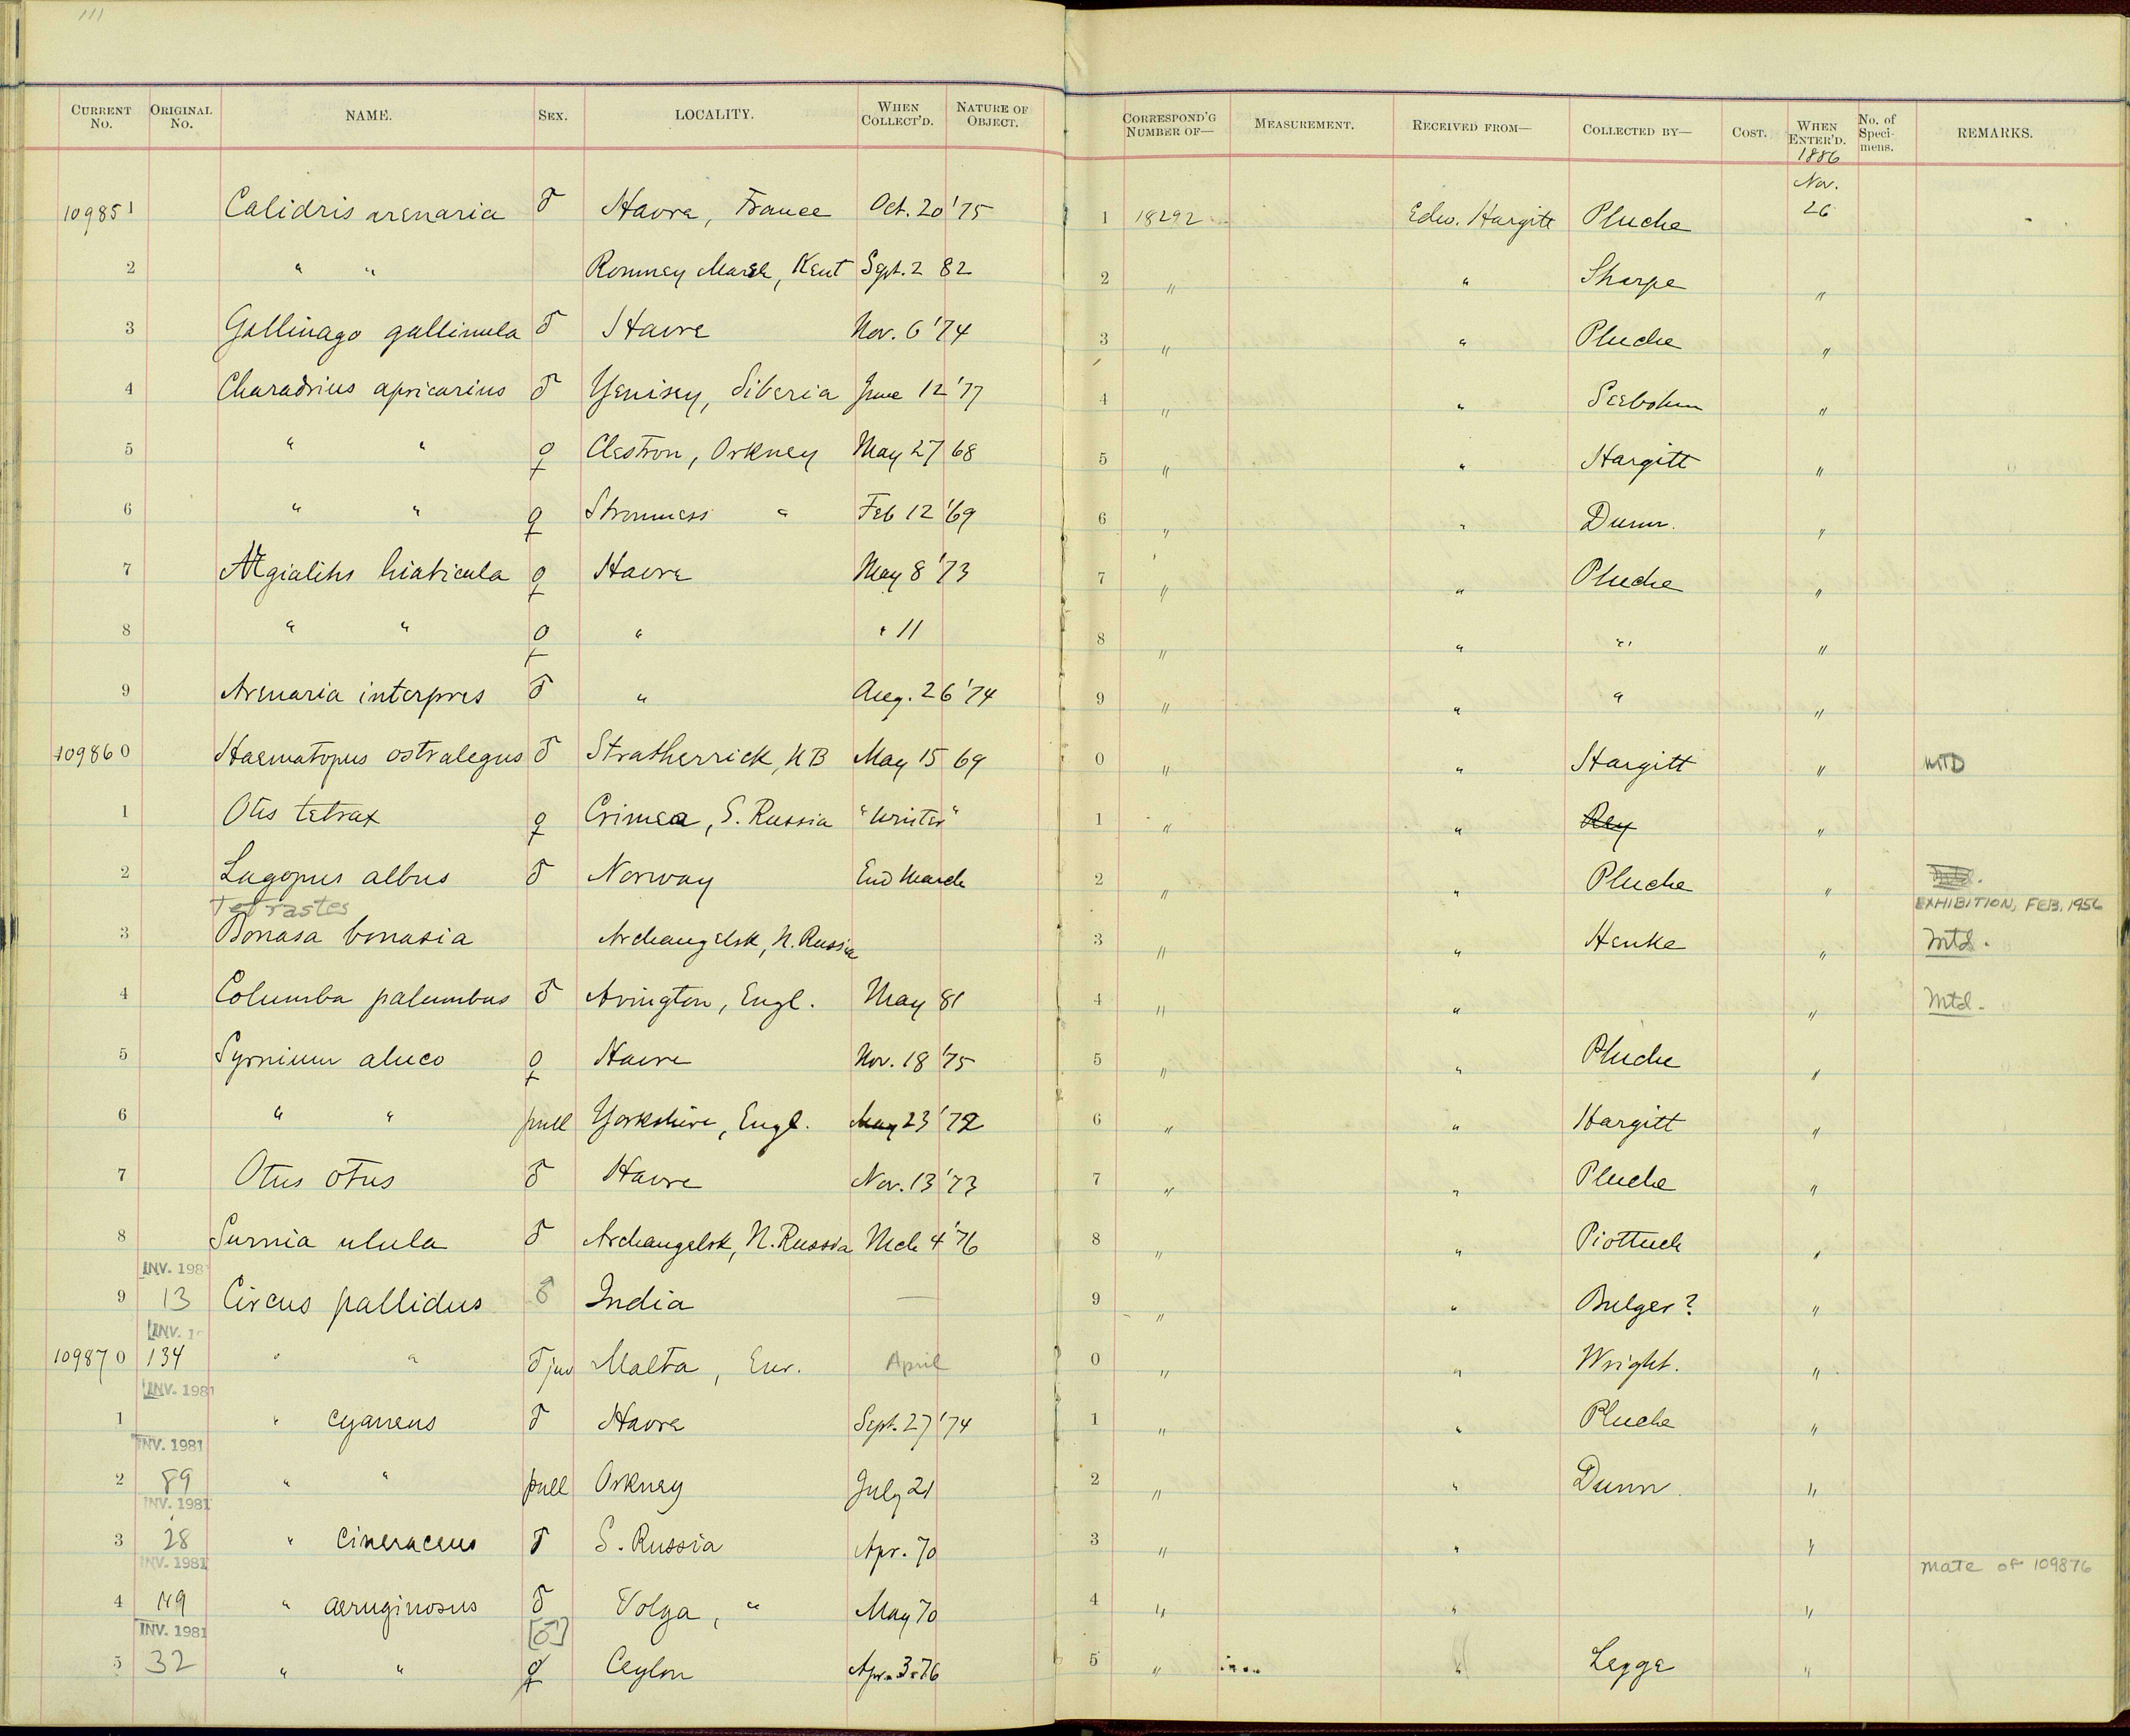 111
CURRENT No. ORIGINAL No. NAME. SEX. LOCALITY. WHEN COLLECT'D. NATURE OF OBJECT. CORRESPOND'G NUMBER OF— MEASUREMENT. RECEIVED FROM— COLLECTED BY— COST. WHEN ENTER'D. No. of Specimens. REMARKS.
1886
Nov.
109851 Calidris arenaria ♂ Havre, France Oct. 20 '75 1 18292 Edw. Hargitt Pluche 26
2 " " Romney Marsh, Kent Sept. 2 82 2 " " Sharpe "
3 Gallinago gallinula ♂ Havre Nov. 6 '74 3 " " Pluche "
4 Charadrius apricarius ♂ Yenisey, Siberia June 12 '77 4 " " Seebohm "
5 " " ♀ Clestron, Orkney May 27 68 5 " " Hargitt "
6 " " ♀ Stromness " Feb 12 '69 6 " " Dunn. "
7 Ægialitis hiaticula ♀ Havre May 8 '73 7 " " Pluche "
8 " " ♀ " " 11 8 " " " "
9 Arenaria interpres ♂ " Aug. 26 '74 9 " " " "
109860 Haematopus ostralegus ♂ Stratherrick, NB May 15 69 0 " " Hargitt " MTD
1 Otis tetrax ♀ Crimea, S. Russia "Winter" 1 " " Rey "
2 Lagopus albus ♂ Norway End March 2 " " Pluche " Mtd.
Tetrastes EXHIBITION, FEB. 1956
3 Bonasa bonasia Archangelsk, N. Russia 3 " " Henke " Mtd.
4 Columba palumbus ♂ Avington, Engl. May 81 4 " " " Mtd.
5 Syrnium aluco ♀ Havre Nov. 18 '75 5 " " Pluche "
6 " " pull Yorkshire, Engl. May 23 '72 6 " " Hargitt "
7 Otus otus ♂ Havre Nov. 13 '73 7 " " Pluche "
8 Surnia ulula ♂ Archangelsk, N. Russia Mch 4 '76 8 " " Piottuch "
INV. 198
9 13 Circus pallidus ♂ India — 9 " " Bulger? "
INV. 1
109870 134 " " ♂ juv Malta, Eur. April 0 " " Wright. "
INV. 1981
1 " cyaneus ♂ Havre Sept. 27 '74 1 " " Pluche "
INV. 1981
2 89 " " pull Orkney July 21 2 " " Dunn. "
INV. 1981
3 28 " cineraceus ♂ S. Russia Apr. 70 3 " " "
INV. 1981 mate of 109876
4 149 " aeruginosus ♂ Volga, " May 70 4 " " "
INV. 1981 [♂]
5 32 " " ♀ Ceylon Apr. 3. 76 5 " " Legge "